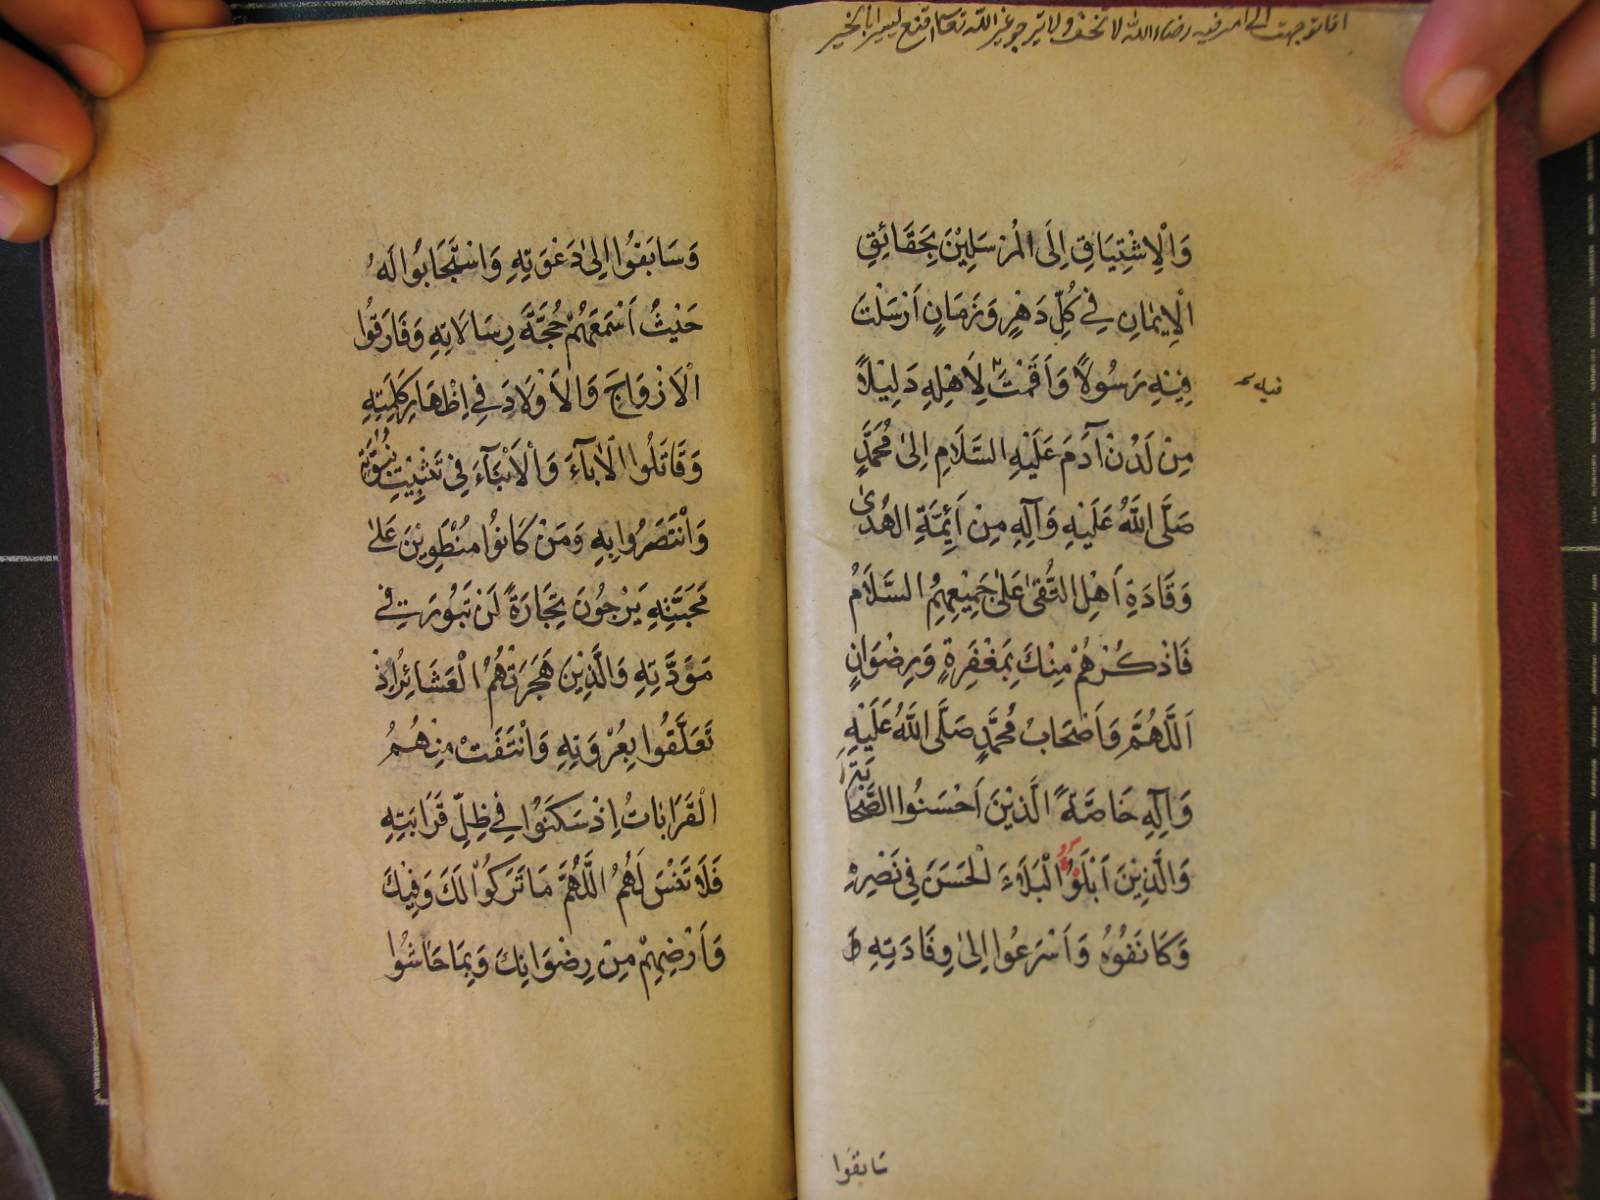 اذا توجهت الى امر فيه رضاء الله لا تخف ولا ترجو غير الله تعالى اقنع
وَالْاِشْتِيَاقِ اِلَى الْمُرْسَلِيْنَ بِحَقَائِقِ
الْاِيْمَانِ فِي كُلِّ دَهْرٍ وَزَمَانٍ اَرْسَلْتَ
فِيْهِ رَسُولًا وَاَقَمْتَ لِاَهْلِهِ دَلِيْلًا
مِنْ لَدُنْ آدَمَ عَلَيْهِ السَّلَامِ اِلىٰ مُحَمَّدٍ
صَلَّى اللّٰهُ عَلَيْهِ وَآلِهِ مِنْ اَئِمَّةِ الهُدىٰ
وَقَادَةِ اَهْلِ التُّقىٰ عَلىٰ جَمِيْعِهِمُ السَّلَامُ
فَاذْكُرْهُمْ مِنْكَ بِمَغْفِرَةٍ وَرِضْوَانٍ
اَللّٰهُمَّ وَاَصْحَابُ مُحَمَّدٍ صَلَّى اللّٰهُ عَلَيْهِ
وَآلِهِ خَاصَّةً الَّذِيْنَ اَحْسَنُوا الصَّحَابَةَ
وَالَّذِيْنَ اَبْلَوُا الْبَلَاءَ الْحَسَنَ فِي نَصْرِهِ
وَكَانَفُوْهُ وَاَسْرَعُوا اِلىٰ وِفَادَتِهِ وَ
سَابقُوا
وَسَابَقُوا اِلىٰ دَعْوَتِهِ وَاسْتَجَابُوا لَهُ
حَيْثُ اَسْمَعَهُمْ حُجَّةَ رِسَالَاتِهِ وَفَارَقُوا
الْاَزْوَاجَ وَالْاَوْلَادَ فِي اِظْهَارِ كَلِمَتِهِ
وَقَاتَلُوا الْاٰبآءَ وَالْاَبْنَآءَ فِي تَثْبِيْتِ نُبُوَّتِهِ
وَانْتَصَرُوا بِهِ وَمَنْ كَانُوْا مُنْطَوِيْنَ عَلىٰ
مَحَبَّتِهِ يَرْجُوْنَ تِجَارَةً لَنْ تَبُوْرَ فِي
مَوَدَّتِهِ وَالَّذِيْنَ هَجَرَتْهُمْ الْعَشَائِرُ اِذْ
تَعَلَّقُوا بِعُرْوَتِهِ وَانْتَفَتْ مِنْهُمُ
الْقَرَابَاتُ اِذْ سَكَنُوْا فِي ظِلِّ قَرَابَتِهِ
فَلَا تَنْسَ لَهُمُ اللّٰهُمَّ مَا تَرَكُوْا لَكَ وَفِيْكَ
وَاَرْضِهِمْ مِنْ رِضْوَانِكَ وَبِمَا حَاشُوا